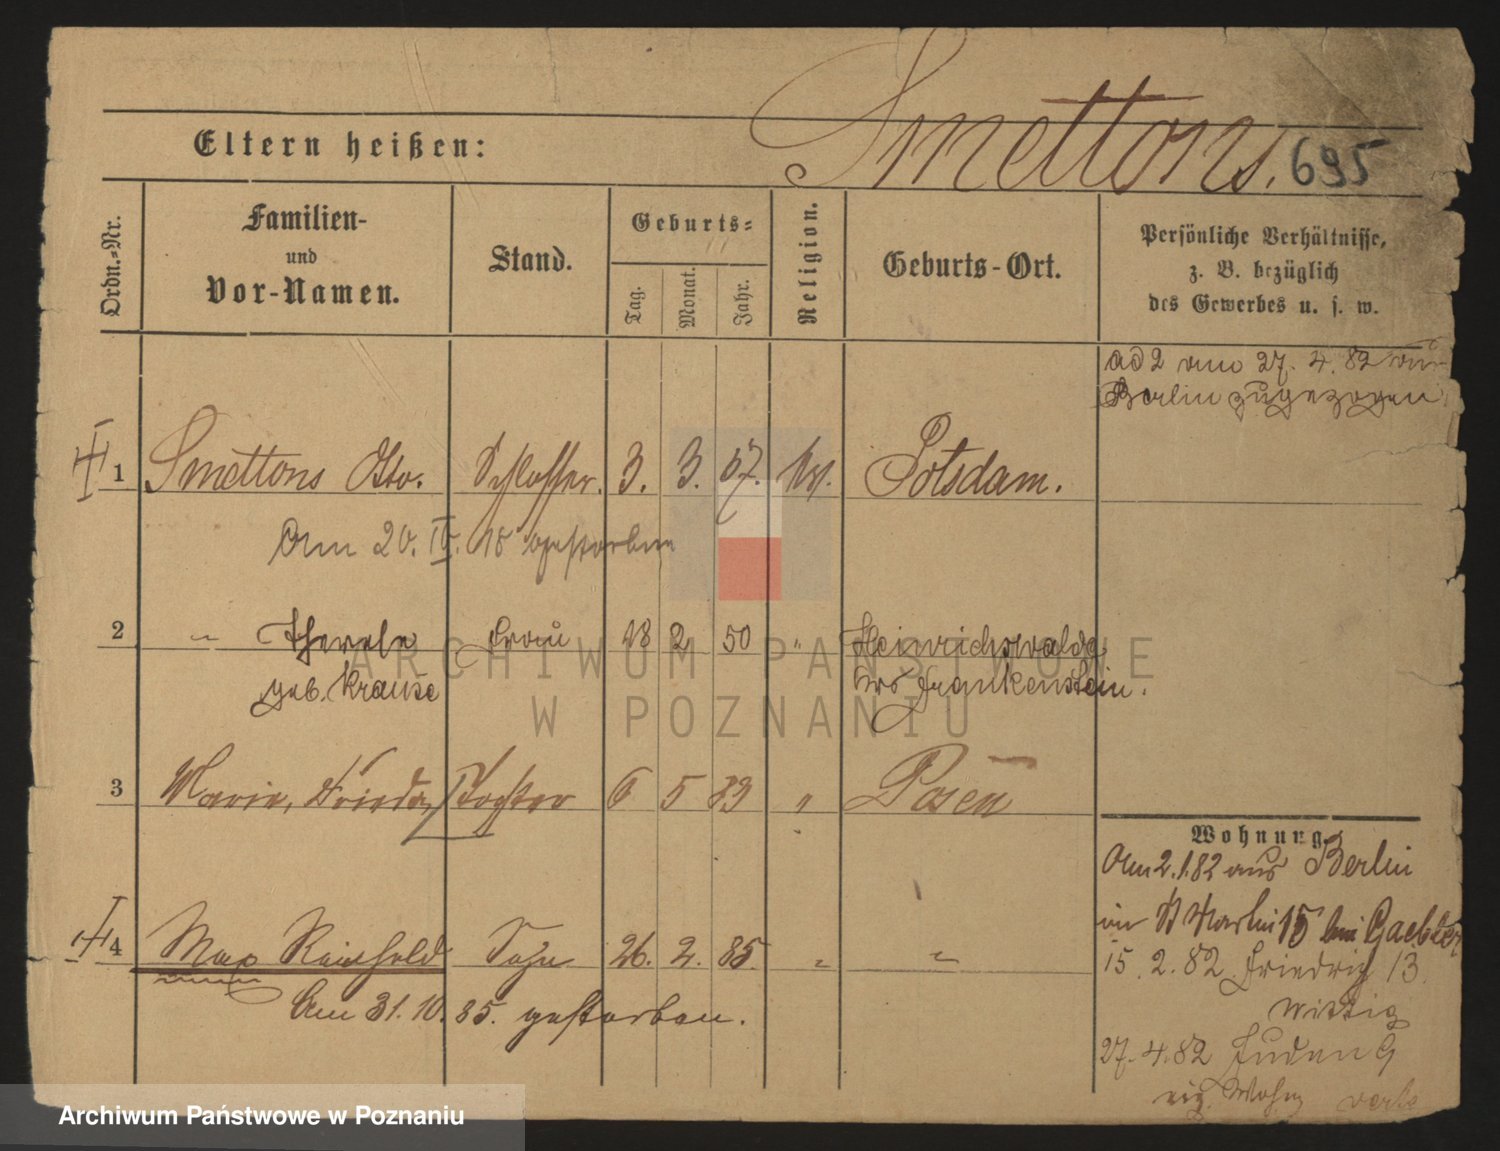 Smettons. 695
Eltern heißen:
Ordn.-Nr.
Familien-
und
Vor-Namen.
Stand.
Geburts-
Tag.
Monat.
Jahr.
Religion.
Geburts-Ort.
Persönliche Verhältnisse,
z. B. bezüglich
des Gewerbes u. s. w.
ad 2 am 27. 4. 82 von
Berlin zugezogen
1 Smettons Otto. Schlosser. 3. 3. 57. Potsdam.
Am 20. IV. 18 gestorben
2 " Frau 18 2 50 " Heinrichswalde
geb. Krause Frankenstein.
3 Marie, Frieda, Tochter 6 5 83 " Posen
4 Max Reinhold Sohn 26. 2. 85. " "
Am 31. 10. 85. gestorben.
Wohnung
Am 2.1.82 aus Berlin
in St Martin 15 bei Gaebler
15. 2. 82 Friedrich 13
Wittig
27. 4. 82 Juden 9
eig. Wohng
ARCHIWUM PAŃSTWOWE
W POZNANIU
Archiwum Państwowe w Poznaniu